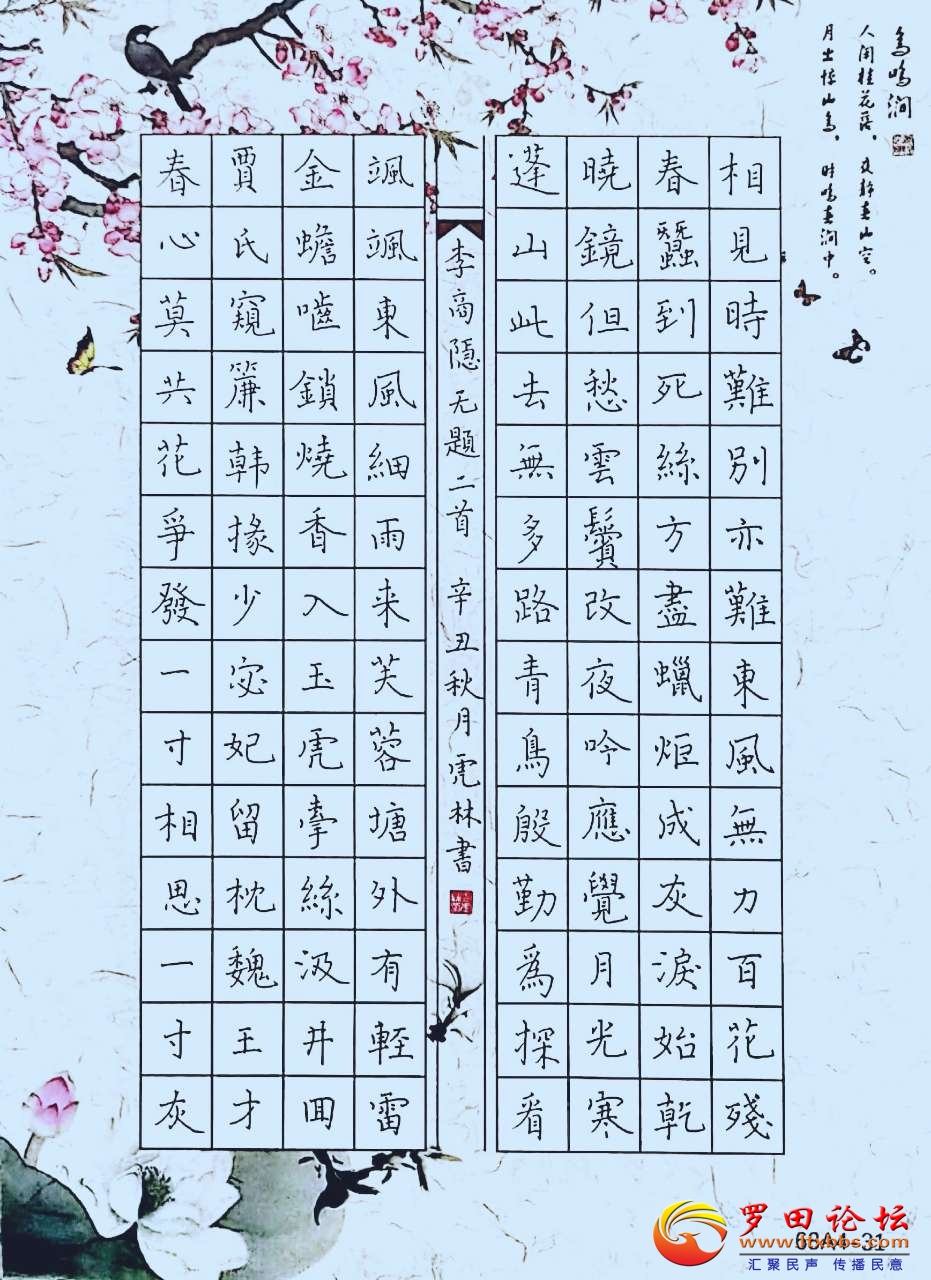 鸟鸣涧
人闲桂花落，夜静春山空。
月出惊山鸟，时鸣春涧中。
相見時難別亦難東風無力百花殘
春蠶到死絲方盡蠟炬成灰淚始乾
曉鏡但愁雲鬢改夜吟應覺月光寒
蓬山此去無多路青鳥殷勤爲探看
李商隐无题二首 辛丑秋月虎林書
颯颯東風細雨来芙蓉塘外有輕雷
金蟾嚙鎖燒香入玉虎牽絲汲井囬
賈氏窺簾韓掾少宓妃留枕魏王才
春心莫共花爭發一寸相思一寸灰
罗田论坛
汇聚民声 传播民意